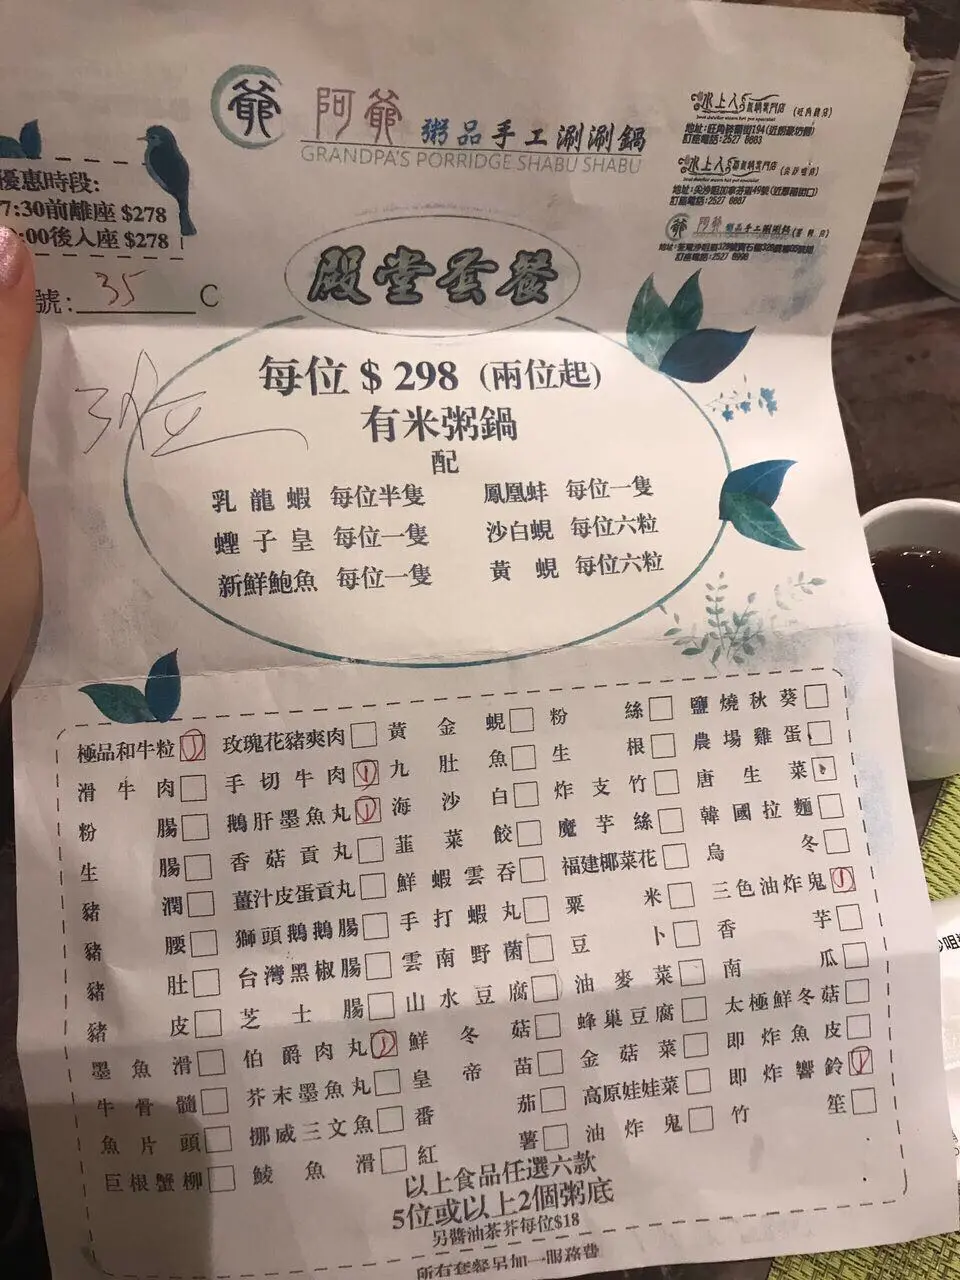 爺 阿爺 粥品手工涮涮鍋
GRANDPA'S PORRIDGE SHABU SHABU
水上人 (旺角韓店)
訂座電話:2527 8803
水上人
地址:尖沙咀加拿芬街49號
訂座電話:2527 8807
爺 阿爺 粥品手工涮涮鍋
訂座電話:2527 8998
優惠時段:
7:30前離座 $278
:00後入座 $278
號: 35 C
殿堂套餐
3位
每位 $ 298 (兩位起)
有米粥鍋
配
乳龍蝦 每位半隻 鳳凰蚌 每位一隻
蟶子皇 每位一隻 沙白蜆 每位六粒
新鮮鮑魚 每位一隻 黃蜆 每位六粒
極品和牛粒 1 玫瑰花豬爽肉 黃金蜆 粉絲 鹽燒秋葵
滑牛肉 手切牛肉 1 九肚魚 生根 農場雞蛋
粉腸 鵝肝墨魚丸 1 海沙白 炸支竹 唐生菜
生腸 香菇貢丸 韮菜餃 魔芋絲 韓國拉麵
豬潤 薑汁皮蛋貢丸 鮮蝦雲吞 福建椰菜花 烏冬
豬腰 獅頭鵝鵝腸 手打蝦丸 粟米 三色油炸鬼 1
豬肚 台灣黑椒腸 雲南野菌 豆卜 香芋
豬皮 芝士腸 山水豆腐 油麥菜 南瓜
墨魚滑 伯爵肉丸 1 鮮冬菇 蜂巢豆腐 太極鮮冬菇
牛骨髓 芥末墨魚丸 皇帝苗 金菇菜 即炸魚皮
魚片頭 挪威三文魚 番茄 高原娃娃菜 即炸響鈴 1
巨根蟹柳 鯪魚滑 紅薯 油炸鬼 竹笙
以上食品任選六款
5位或以上2個粥底
另醬油茶芥每位$18
所有套餐另加一服務費